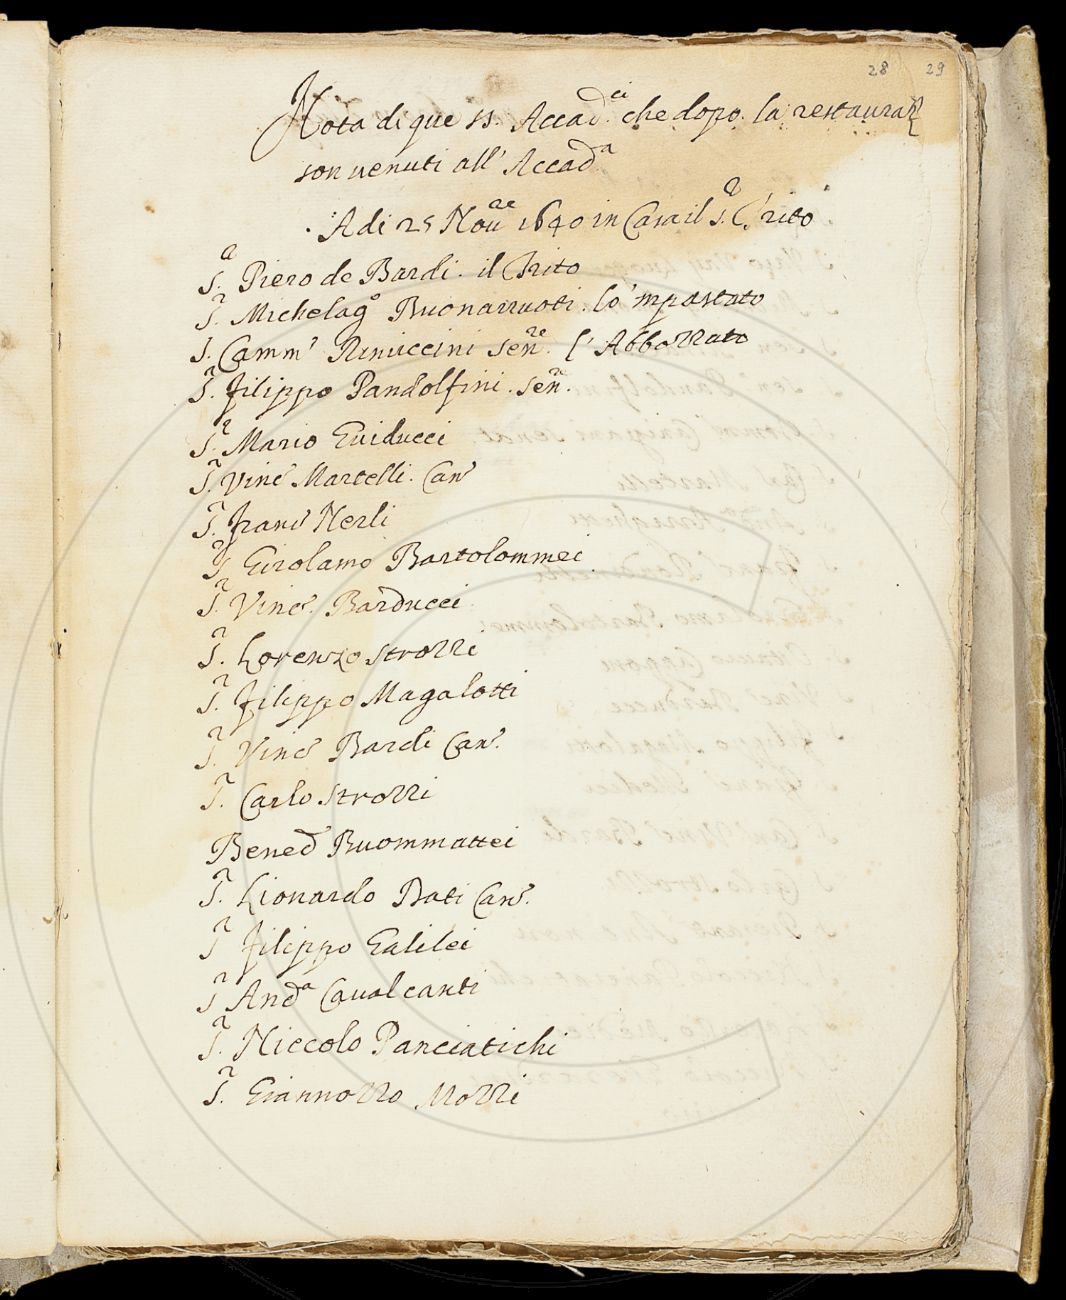 28 29
Nota di que SS. Accad.ci che dopo la restauraz
son venuti all' Accad.a
Adi 25 Nou.re 1640 in Casa il S.r Trito
S.r Piero de Bardi. il Trito
S.r Michelag.o Buonarruoti. lo 'mpastato
S. Camm.o Rinuccini Sen.re l'Abbozzato
S.r Filippo Pandolfini. Sen.re
S.r Mario Guiducci
S.r Vinc.o Martelli. Can.o
S.r Franc.o Nerli
S.r Girolamo Bartolommei
S.r Vinc.o Barducci
S.r Lorenzo Strozzi
S.r Filippo Magalotti
S.r Vinc.o Bardi Can.o
S.r Carlo Strozzi
Bened.o Buommattei
S.r Lionardo Dati Can.o
S.r Filippo Galilei
S.r And.a Cavalcanti
S.r Niccolo Panciatichi
S.r Giannozzo Mozzi